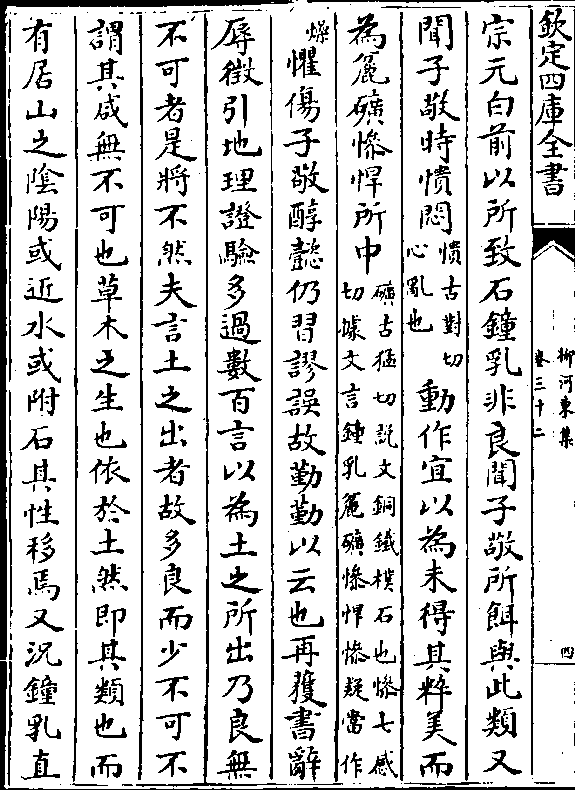 欽定四庫全書
柳河東集
卷三十二
四
宗元白前以所致石鐘乳非良聞子敬所餌與此類又
聞子敬時憒悶憒古對切心亂也動作宜以為未得其粹美而
為麄礦慘悍所中礦古猛切説文銅鐵樸石也慘七感切據文言鐘乳麄礦慘悍慘疑當作
燥懼傷子敬醇懿仍習謬誤故勤勤以云也再獲書辭
辱徵引地理證驗多過數百言以為土之所出乃良無
不可者是將不然夫言土之出者故多良而少不可不
謂其咸無不可也草木之生也依於土然即其類也而
有居山之陰陽或近水或附石其性移焉又況鐘乳直